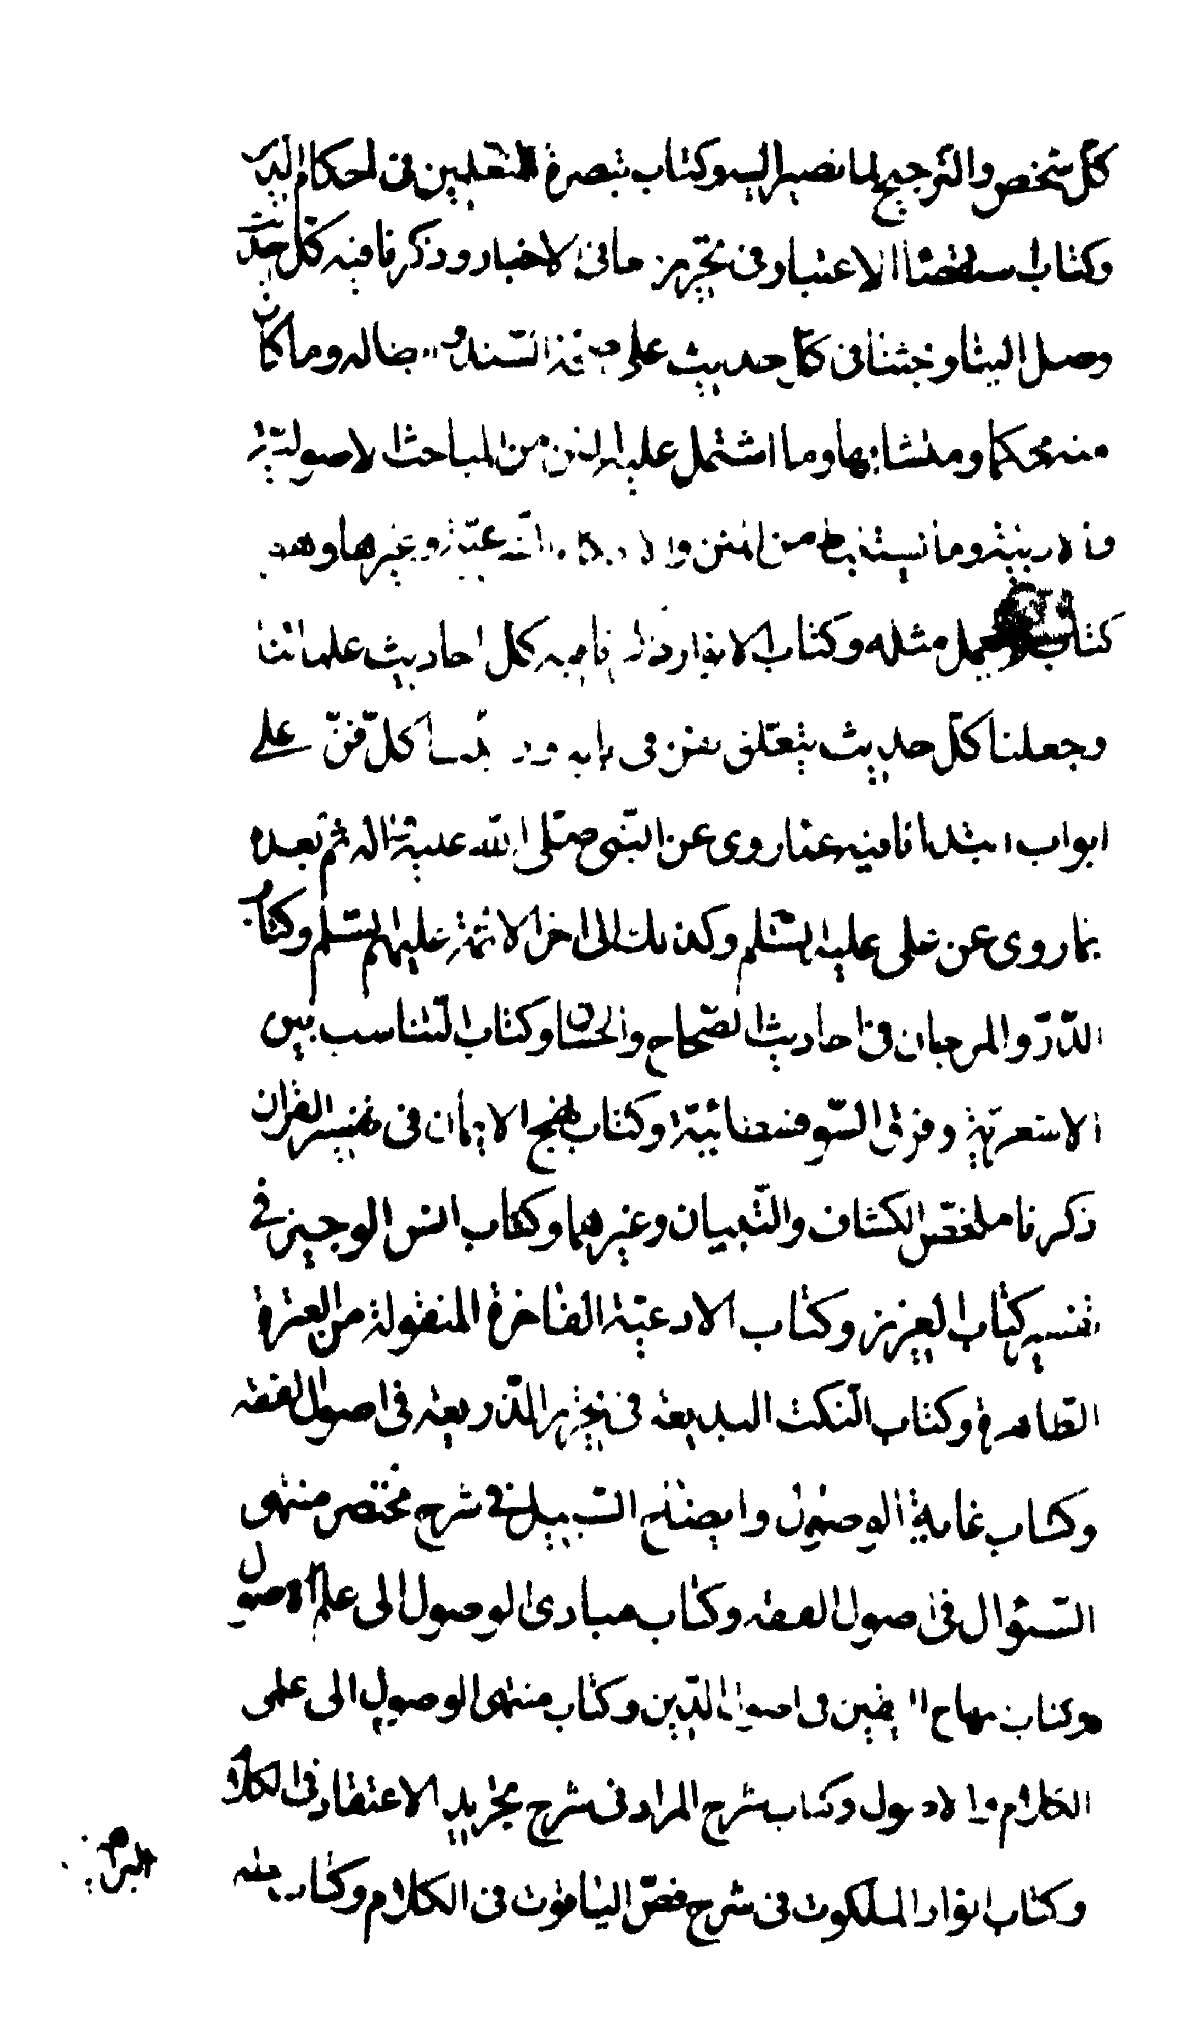 كل شخص والترجيح لما نصير اليه وكتاب تبصرة المتعلمين في احكام الدين
وكتاب استقصاء الاعتبار في تحرير معاني الاخبار وذكرنا فيه كل حديث
وصل الينا وبحثنا في كل حديث على صحة السند او ابطاله وما كان
منه محكما ومتشابها وما اشتمل عليه المتن من المباحث الاصولية
والادبية وما يستنبط من المتن من الاحكام الشرعية وغيرها وهو
كتاب لم يعمل مثله وكتاب الانوار ذكرنا فيه كل احاديث علمائنا
وجعلنا كل حديث يتعلق بفن في بابه ورتبنا كل فن على
ابواب ابتدأنا فيه بما روى عن النبي صلى الله عليه واله ثم بعده
بما روى عن علي عليه السلم وكذلك الى اخر الائمة عليهم السلم وكتاب
الدر والمرجان في احاديث الصحاح والحسان وكتاب التناسب بين
الاشعرية وفرق السوفسطائية وكتاب نهج الايمان في تفسير القران
ذكرنا ملخص الكشاف والتبيان وغيرهما وكتاب السر الوجيز في
تفسير كتاب العزيز وكتاب الادعية الفاخرة المنقولة من العترة
الطاهرة وكتاب النكت البديعة في تحرير الذريعة في اصول الفقه
وكتاب غاية الوصول وايضاح السبيل في شرح مختصر منتهى
السئوال في اصول الفقه وكتاب مبادى الوصول الى علم الاصول
وكتاب منهاج اليقين في اصول الدين وكتاب منتهى الوصول الى علمى
الكلام والاصول وكتاب شرح المراد في شرح تجريد الاعتقاد في الكلام
وكتاب انوار الملكوت في شرح فص الياقوت في الكلام وكتاب